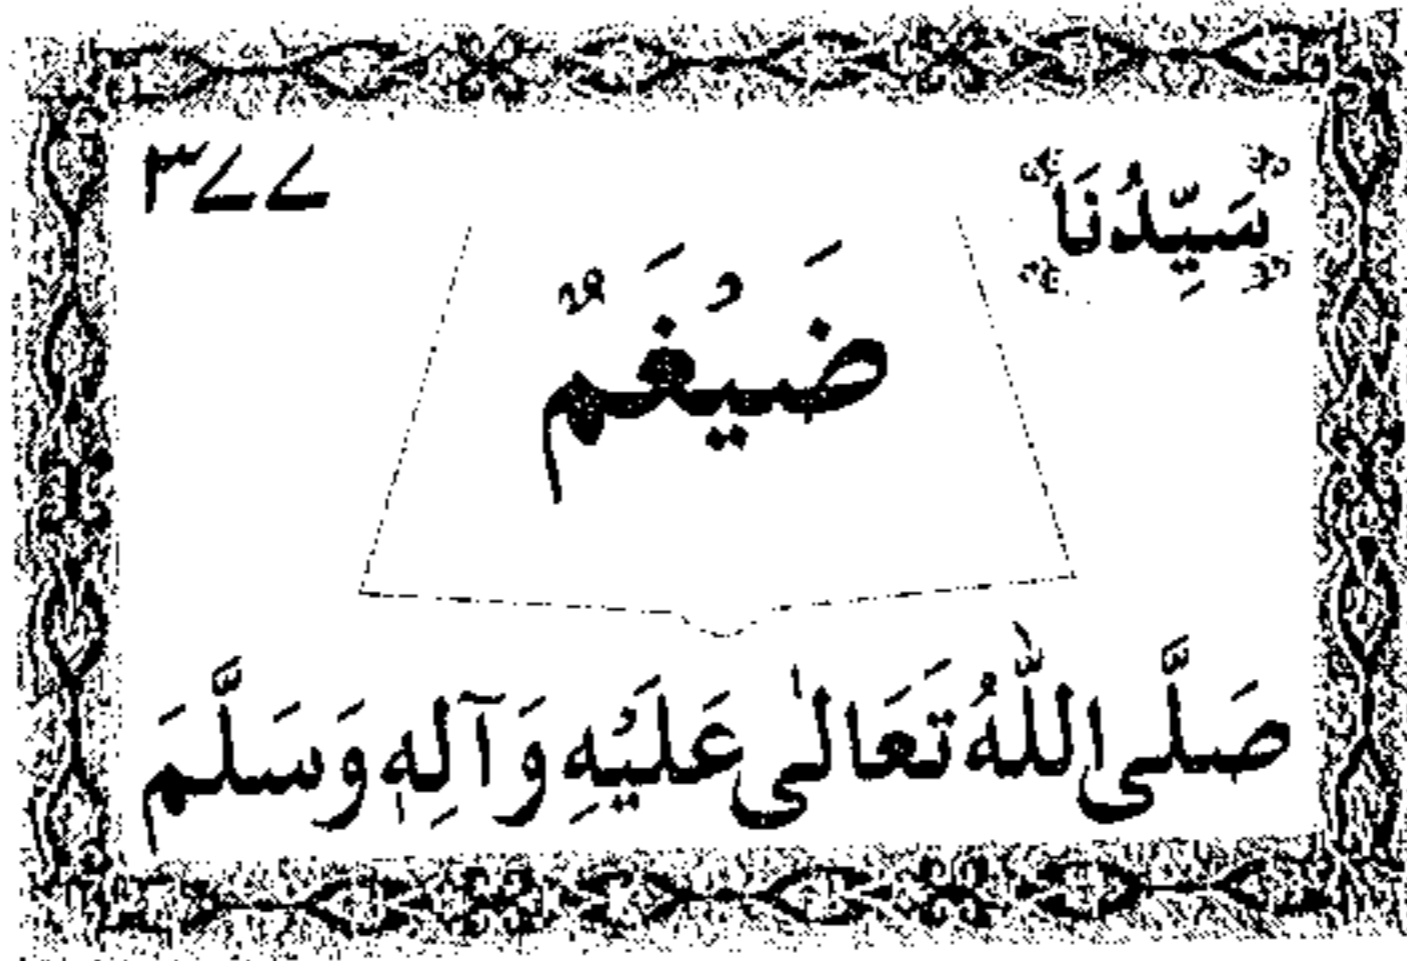 سَيِّدُنَا
۳۷۷
ضَيْغَمٌ
صَلَّى اللّٰهُ تَعَالٰى عَلَيْهِ وَآلِهٖ وَسَلَّمَ